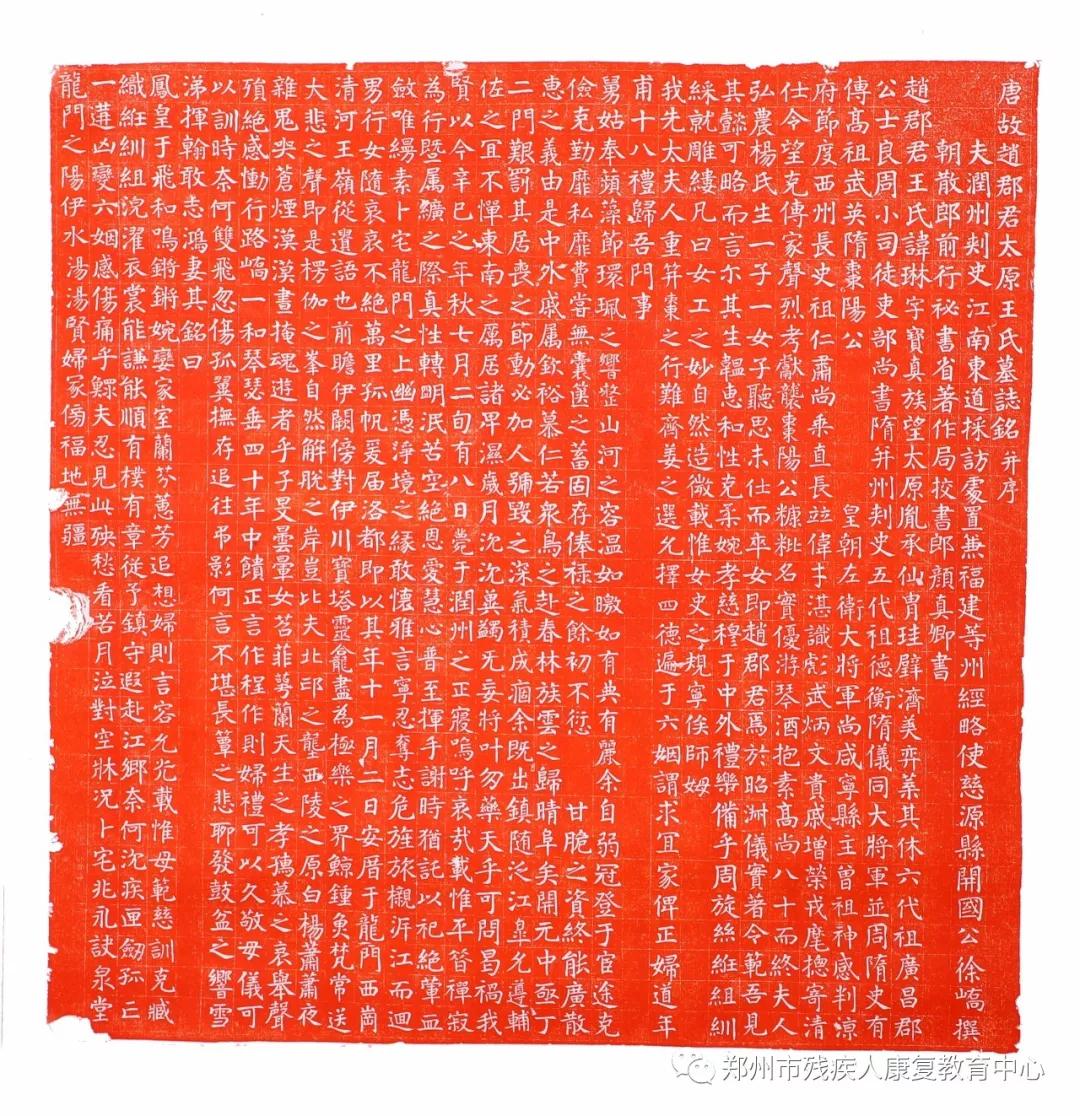 唐故趙郡君太原王氏墓誌銘并序
夫潤州刾史江南東道採訪處置兼福建等州經略使慈源縣開國公徐嶠撰
朝散郎前行秘書省著作局挍書郎顏真卿書
趙郡君王氏諱琳字寶真族望太原胤承仙胄珪璧濟美弈葉其休六代祖廣昌郡
公士良周小司徒吏部尚書隋并州刾史五代祖德衡隋儀同大將軍並周隋史有
傳髙祖武英隋棗陽公 皇朝左衛大將軍尚咸寧縣王曾祖神感判涼
府節度西州長史祖仁肅尚乘直長竝偉才湛識彪武炳文貴戚增榮戎麾揔寄清
仕令望克傳家聲烈考獻襲棗陽公糠粃名實優游琴酒抱素髙尚八十而終夫人
弘農楊氏生一子一女子聽思未仕而卒女即趙郡君焉於昭淑儀實著令範吾見
其懿可略而言尒其生韞惠和性克柔婉孝慈穆于中外禮樂備乎周旋絲絍組紃
綵就雕縷凡曰女工之妙自然造微載惟女史之規寧俟師姆
我先太夫人重幷棗之行難齊姜之選允擇四德遍于六姻謂求宜家俾正婦道年
甫十八禮歸吾門事
舅姑奉蘋藻節環珮之響整山河之容温如暾如有典有麗余自弱冠登于宦途克
儉克勤靡私靡費嘗無囊篋之蓄固存俸禄之餘初不衒 甘脆之資終能廣散
惠之義由是中外戚属欽裕慕仁若衆鳥之赴春林族雲之歸晴阜矣開元中亟丁
二門艱罰其居喪之節動必加人號毀之深氣積成痼余既出鎮随泛江皐允遵輔
佐之宜不憚東南之厲居諸卑濕歲月沈沈冀蠲旡妄將叶勿藥天乎可問曷禍我
賢以今辛巳之年秋七月二旬有八日薨于潤州之正寢嗚呼哀㢤載惟平昔禪寂
為行暨属纊之際真性轉眀泯苦空絶恩愛慧心普至揮手謝時猶託以祀絶葷血
斂唯縵素卜宅龍門之上幽憑淨境之緣敢懷雅言寧忍奪志危旌旅櫬泝江而迴
男行女隨哀哀不絶萬里孤帆爰届洛都即以其年十一月二日安厝于龍門西崗
清河王嶺從遺語也前瞻伊闕傍對伊川寶塔靈龕盡為極樂之界鯨鍾魚梵常送
大悲之聲即是楞伽之峯自然解脫之岸豈比夫北邙之壟西陵之原白楊蕭蕭夜
雜鬼哭蒼煙漠漠晝掩魂遊者乎子旻曇暈女苕菲萼蘭天生之孝孺慕之哀舉聲
殞絶感慟行路嶠一和琴瑟垂四十年中饋正言作程作則婦禮可以久敬毋儀可
以訓時奈何雙飛忽傷孤翼撫存追往弔影何言不堪長簟之悲聊發鼓盆之響雪
涕揮翰敢志鴻妻其銘曰
鳳皇于飛和鳴鏘鏘婉孌家室蘭芬蕙芳追想婦則言容允光載惟母範慈訓克臧
織絍紃組浣濯衣裳能謙能順有樸有章從予鎮守遐赴江郷奈何沈疾匣劔孤亡
一遘凶變六姻感傷痛乎鰥夫忍見此殃愁看苦月泣對空牀況卜宅兆永訣泉堂
龍門之陽伊水湯湯賢婦冢傍福地無疆
郑州市残疾人康复教育中心